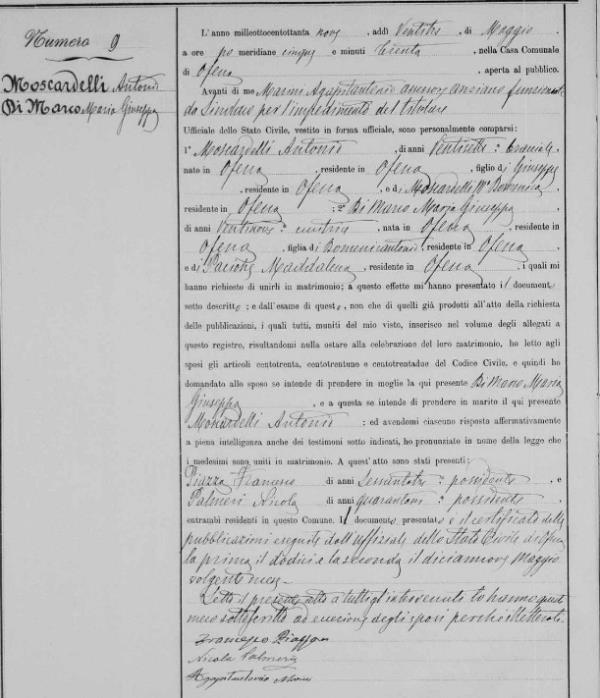 Numero 9
Moscardelli Antonio
Di Marco Maria Giuseppa
L'anno milleottocentottanta nove, addì Ventitre, di Maggio
a ore po meridiane cinque e minuti trenta, nella Casa Comunale
di Ofena, aperta al pubblico.
Avanti di me Marini Agapitantonio assessore anziano funzionante
da Sindaco per l'impedimento del titolare
Ufficiale dello Stato Civile, vestito in forma officiale, sono personalmente comparsi:
1° Moscardelli Antonio, di anni Ventisette:
nato in Ofena, residente in Ofena, figlio di Giuseppe
, residente in Ofena, e di Moscardelli Ma Domenica
residente in Ofena; 2° Di Marco Maria Giuseppa
di anni Ventinove: , nata in Ofena, residente in
Ofena, figlia di Domenicantonio, residente in Ofena
e di Maddalena, residente in Ofena, i quali mi
hanno richiesto di unirli in matrimonio; a questo effetto mi hanno presentato il document
sotto descritto; e dall'esame di questo, non che di quelli già prodotti all'atto della richiesta
delle pubblicazioni, i quali tutti, muniti del mio visto, inserisco nel volume degli allegati a
questo registro, risultandomi nulla ostare alla celebrazione del loro matrimonio, ho letto agli
sposi gli articoli centotrenta, centotrentuno e centotrentadue del Codice Civile, e quindi ho
domandato allo sposo se intende di prendere in moglie la qui presente Di Marco Maria
Giuseppa, e a questa se intende di prendere in marito il qui presente
Moscardelli Antonio: ed avendomi ciascuno risposto affermativamente
a piena intelligenza anche dei testimoni sotto indicati, ho pronunziato in nome della legge che
i medesimi sono uniti in matrimonio. A quest'atto sono stati presenti:
Piazza Francesco di anni sessantatre: possidente e
Palmeri Nicola di anni quarantove: possidente,
entrambi residenti in questo Comune. Il documento presentato è il certificato delle
pubblicazioni eseguite dall'uffiziale dello Stato Civile di Ofena
la prima il dodici e la seconda il diciannove Maggio
volgente anno
Letto il presente atto a tutti gl'intervenuti lo hanno quindi
meco sottoscritto ad eccezione degli sposi perchè illetterati.
Francesco Piazza
Nicola Palmeri
Agapitantonio Marini